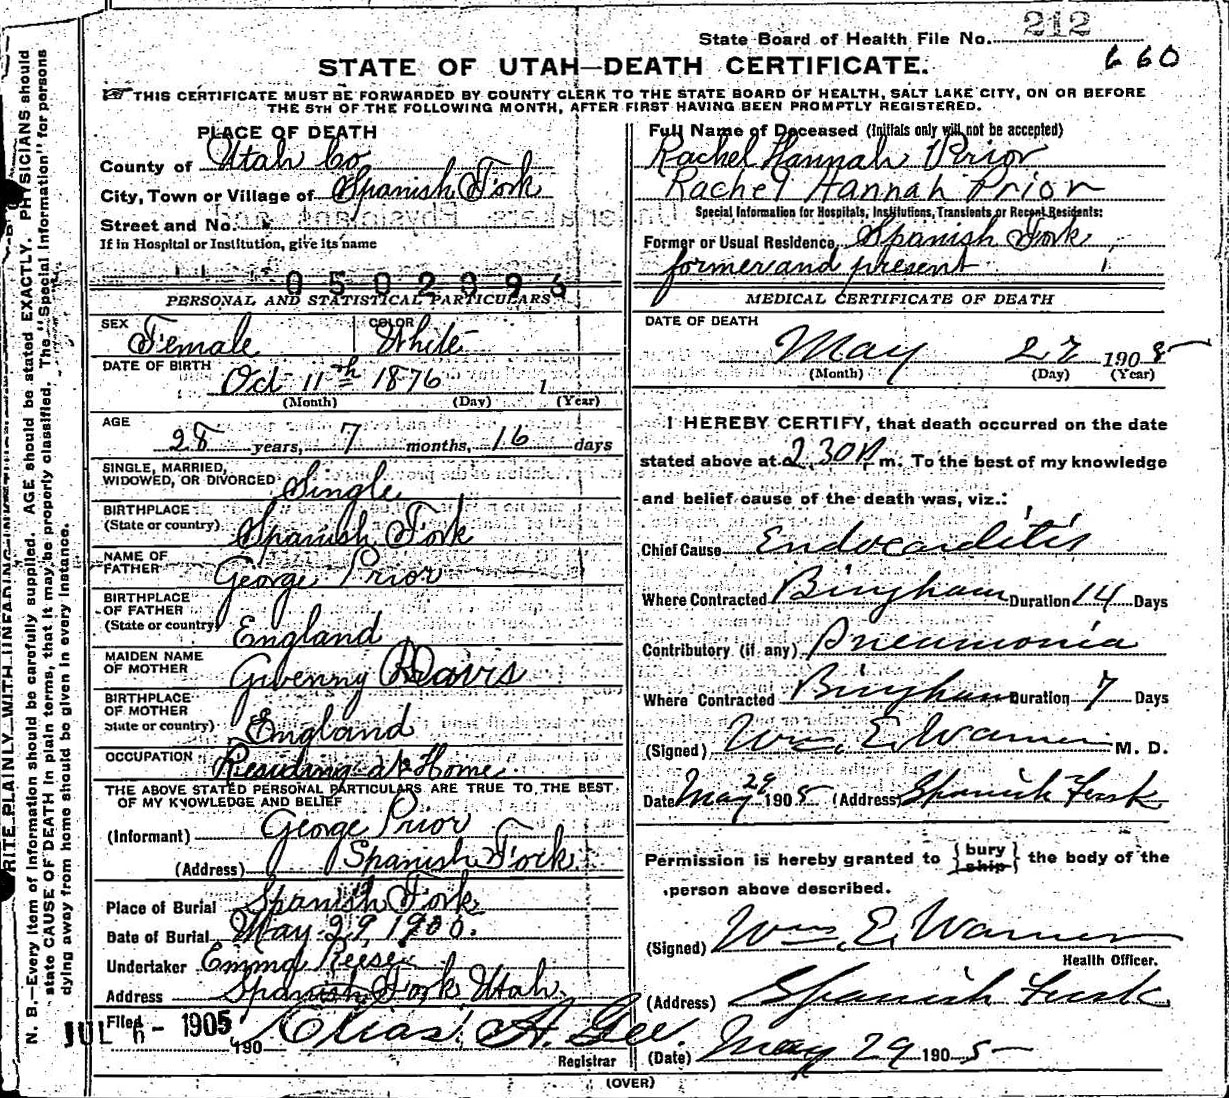 212
State Board of Health File No.
660
STATE OF UTAH—DEATH CERTIFICATE.
THIS CERTIFICATE MUST BE FORWARDED BY COUNTY CLERK TO THE STATE BOARD OF HEALTH, SALT LAKE CITY, ON OR BEFORE
THE 5TH OF THE FOLLOWING MONTH, AFTER FIRST HAVING BEEN PROMPTLY REGISTERED.
PLACE OF DEATH
County of Utah Co
City, Town or Village of Spanish Fork
Street and No.
If in Hospital or Institution, give its name
0502096
PERSONAL AND STATISTICAL PARTICULARS
SEX Female COLOR White
DATE OF BIRTH Oct 11th 1876
(Month) (Day) (Year)
AGE
28 years, 7 months, 16 days
SINGLE, MARRIED,
WIDOWED, OR DIVORCED Single
BIRTHPLACE
(State or country) Spanish Fork
NAME OF
FATHER George Prior
BIRTHPLACE
OF FATHER
(State or country) England
MAIDEN NAME
OF MOTHER Gwenny Davis
BIRTHPLACE
OF MOTHER
State or country) England
OCCUPATION Residing at Home
THE ABOVE STATED PERSONAL PARTICULARS ARE TRUE TO THE BEST
OF MY KNOWLEDGE AND BELIEF
(Informant) George Prior
(Address) Spanish Fork
Place of Burial Spanish Fork
Date of Burial May 29 1900.
Undertaker Emma Reese
Address Spanish Fork Utah
Filed JUL 6 - 1905
190 Elias A. Gee.
Registrar
Full Name of Deceased (Initials only will not be accepted)
Rachel Hannah Prior
Rachel Hannah Prior
Special Information for Hospitals, Institutions, Transients or Recent Residents:
Former or Usual Residence Spanish Fork
former and present
MEDICAL CERTIFICATE OF DEATH
DATE OF DEATH
May 27 1905
(Month) (Day) (Year)
I HEREBY CERTIFY, that death occurred on the date
stated above at 2.30 P m. To the best of my knowledge
and belief cause of the death was, viz.:
Chief Cause Endocarditis
Where Contracted Bingham Duration 14 Days
Contributory (if any) Pneumonia
Where Contracted Bingham Duration 7 Days
(Signed) Wm. E. Warner M. D.
Date May 29 1905 (Address) Spanish Fork
Permission is hereby granted to {bury ship} the body of the
person above described.
(Signed) Wm. E. Warner
Health Officer.
(Address) Spanish Fork
(Date) May 29 1905
(OVER)
N. B.—Every item of information should be carefully supplied. AGE should be stated EXACTLY. PHYSICIANS should
state CAUSE OF DEATH in plain terms, that it may be properly classified. The "Special Information" for persons
dying away from home should be given in every instance.